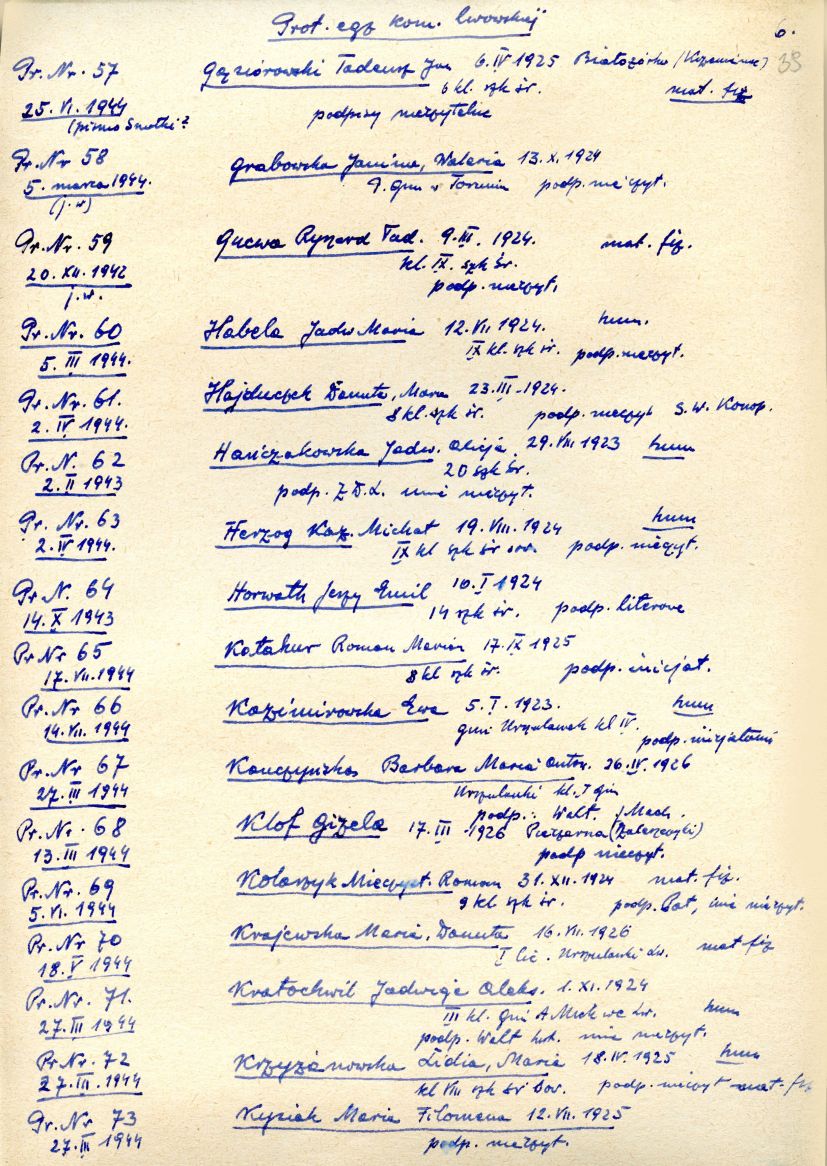 Prot. egz kom. lwowskiej
6.
38
Pr. Nr. 57 Gąsiorowski Tadeusz Jan 6.IV 1925 Białozórka (Krzemieniec)
25.VI.1944 6 kl. szk śr. mat. fiz
(pismo Smolki? podpisy nieczytelne
Pr. Nr 58 Grabowska Janina, Waleria 13.X.1924
5. marca 1944. gim w Toruniu podp. nieczyt.
(j.w)
Pr. Nr. 59 Gucwa Ryszard Tad. 9.III. 1924. mat. fiz.
20.XII.1942 kl. IX. szk śr.
j.w. podp. nieczyt.
Pr. Nr. 60 Habela Jadw Maria 12.VII 1924. hum.
5. III 1944. IX kl. szk śr. podp. nieczyt.
Pr. Nr. 61. Hajduczek Danuta, Maria 23.III-1924.
2. IV 1944. 8 kl. szk śr. podp. nieczyt S.W. Konop.
Pr. N. 62 Hańczakowska Jadw. Alicja 29.VIII 1923 hum
2.II 1943 20 szk śr.
podp. Z.D.L. inni nieczyt.
Pr. Nr. 63 Herzog Kaz. Michał 19.VIII.1924 hum
2.IV 1944. IX kl szk śr sow. podp. nieczyt.
Pr N. 64 Horwath Jerzy Emil 10.I 1924
14.X 1943 14 szk śr. podp. literowe
Pr Nr 65 Katahur Roman Marian 17.IX 1925
17.VII.1944 8 kl szk śr. podp. inicjał.
Pr. Nr 66 Kazimirowska Ewa 5.I.1923. hum
14.VII.1944 gim Urszulanek kl IV. podp. inicjałami
Pr. Nr 67 Barbara Maria Anton. 26.IV.1926
27.III 1944 Urszulanki kl. I gim
podp.: Walt. J Mach.
Pr. Nr. 68 Klof Gizela 17.III-1926 (Zaleszczyki)
13.III 1944 podp nieczyt.
Pr. Nr. 69 Kolarzyk Mieczysł. Roman 31.XII.1924 mat. fiz.
5.VI.1944 9 kl szk śr. podp. Bat, inne nieczyt.
Pr. Nr 70 Krajewska Maria, Danuta 16.VII.1926
18.V 1944 I lic. Urszulanki Lw. mat fiz
Pr. Nr. 71. Kratochwil Jadwiga Aleks. 1.XI.1924
27.III 1944 III kl. gim A Mick we Lw. hum
podp. Walt inne nieczyt.
Pr. Nr. 72 Krzyżanowska Lidia, Maria 18.IV.1925 hum
27.III.1944 kl VIII szk śr Sow. podp. nieczyt mat. fiz
Pr. Nr 73 Kysiak Maria Filomena 12.VII.1925
27.III 1944 podp. nieczyt.